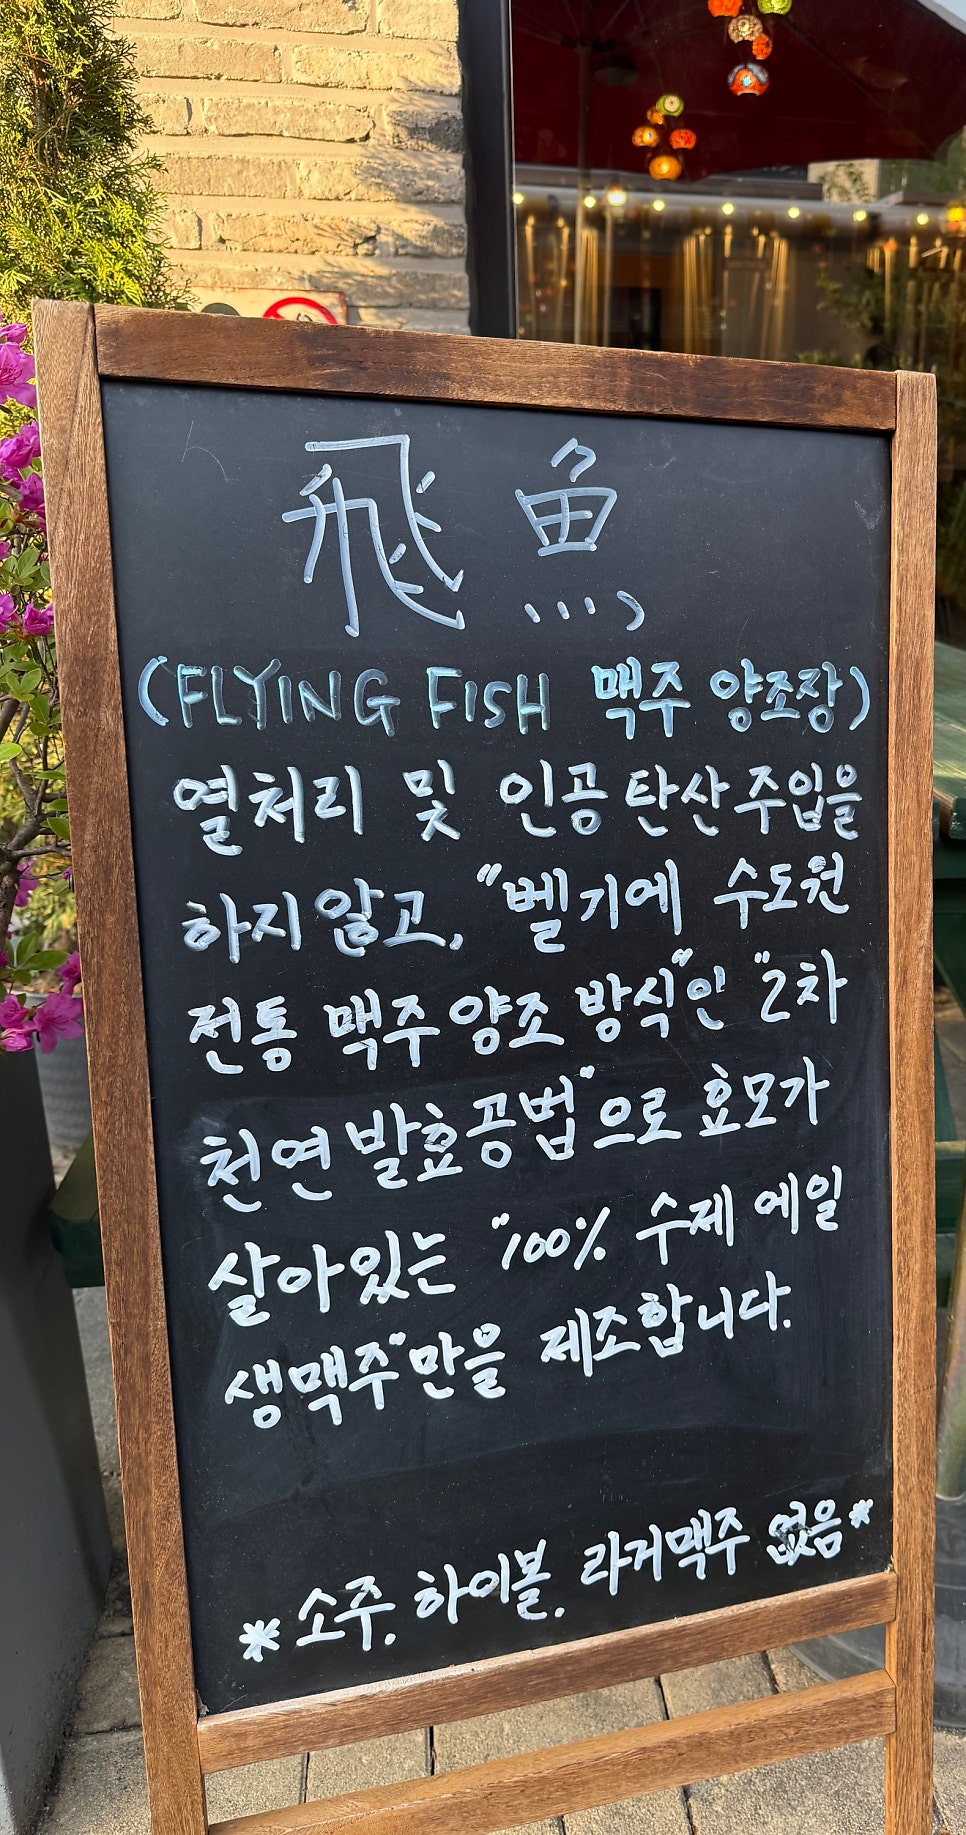 飛魚
(FLYING FISH 맥주 양조장)
열처리 및 인공 탄산 주입을
하지 않고, "벨기에 수도원
전통 맥주 양조 방식"인 "2차
천연 발효공법"으로 효모가
살아있는 "100% 수제 에일
생맥주"만을 제조합니다.
*소주, 하이볼, 라거맥주 없음*